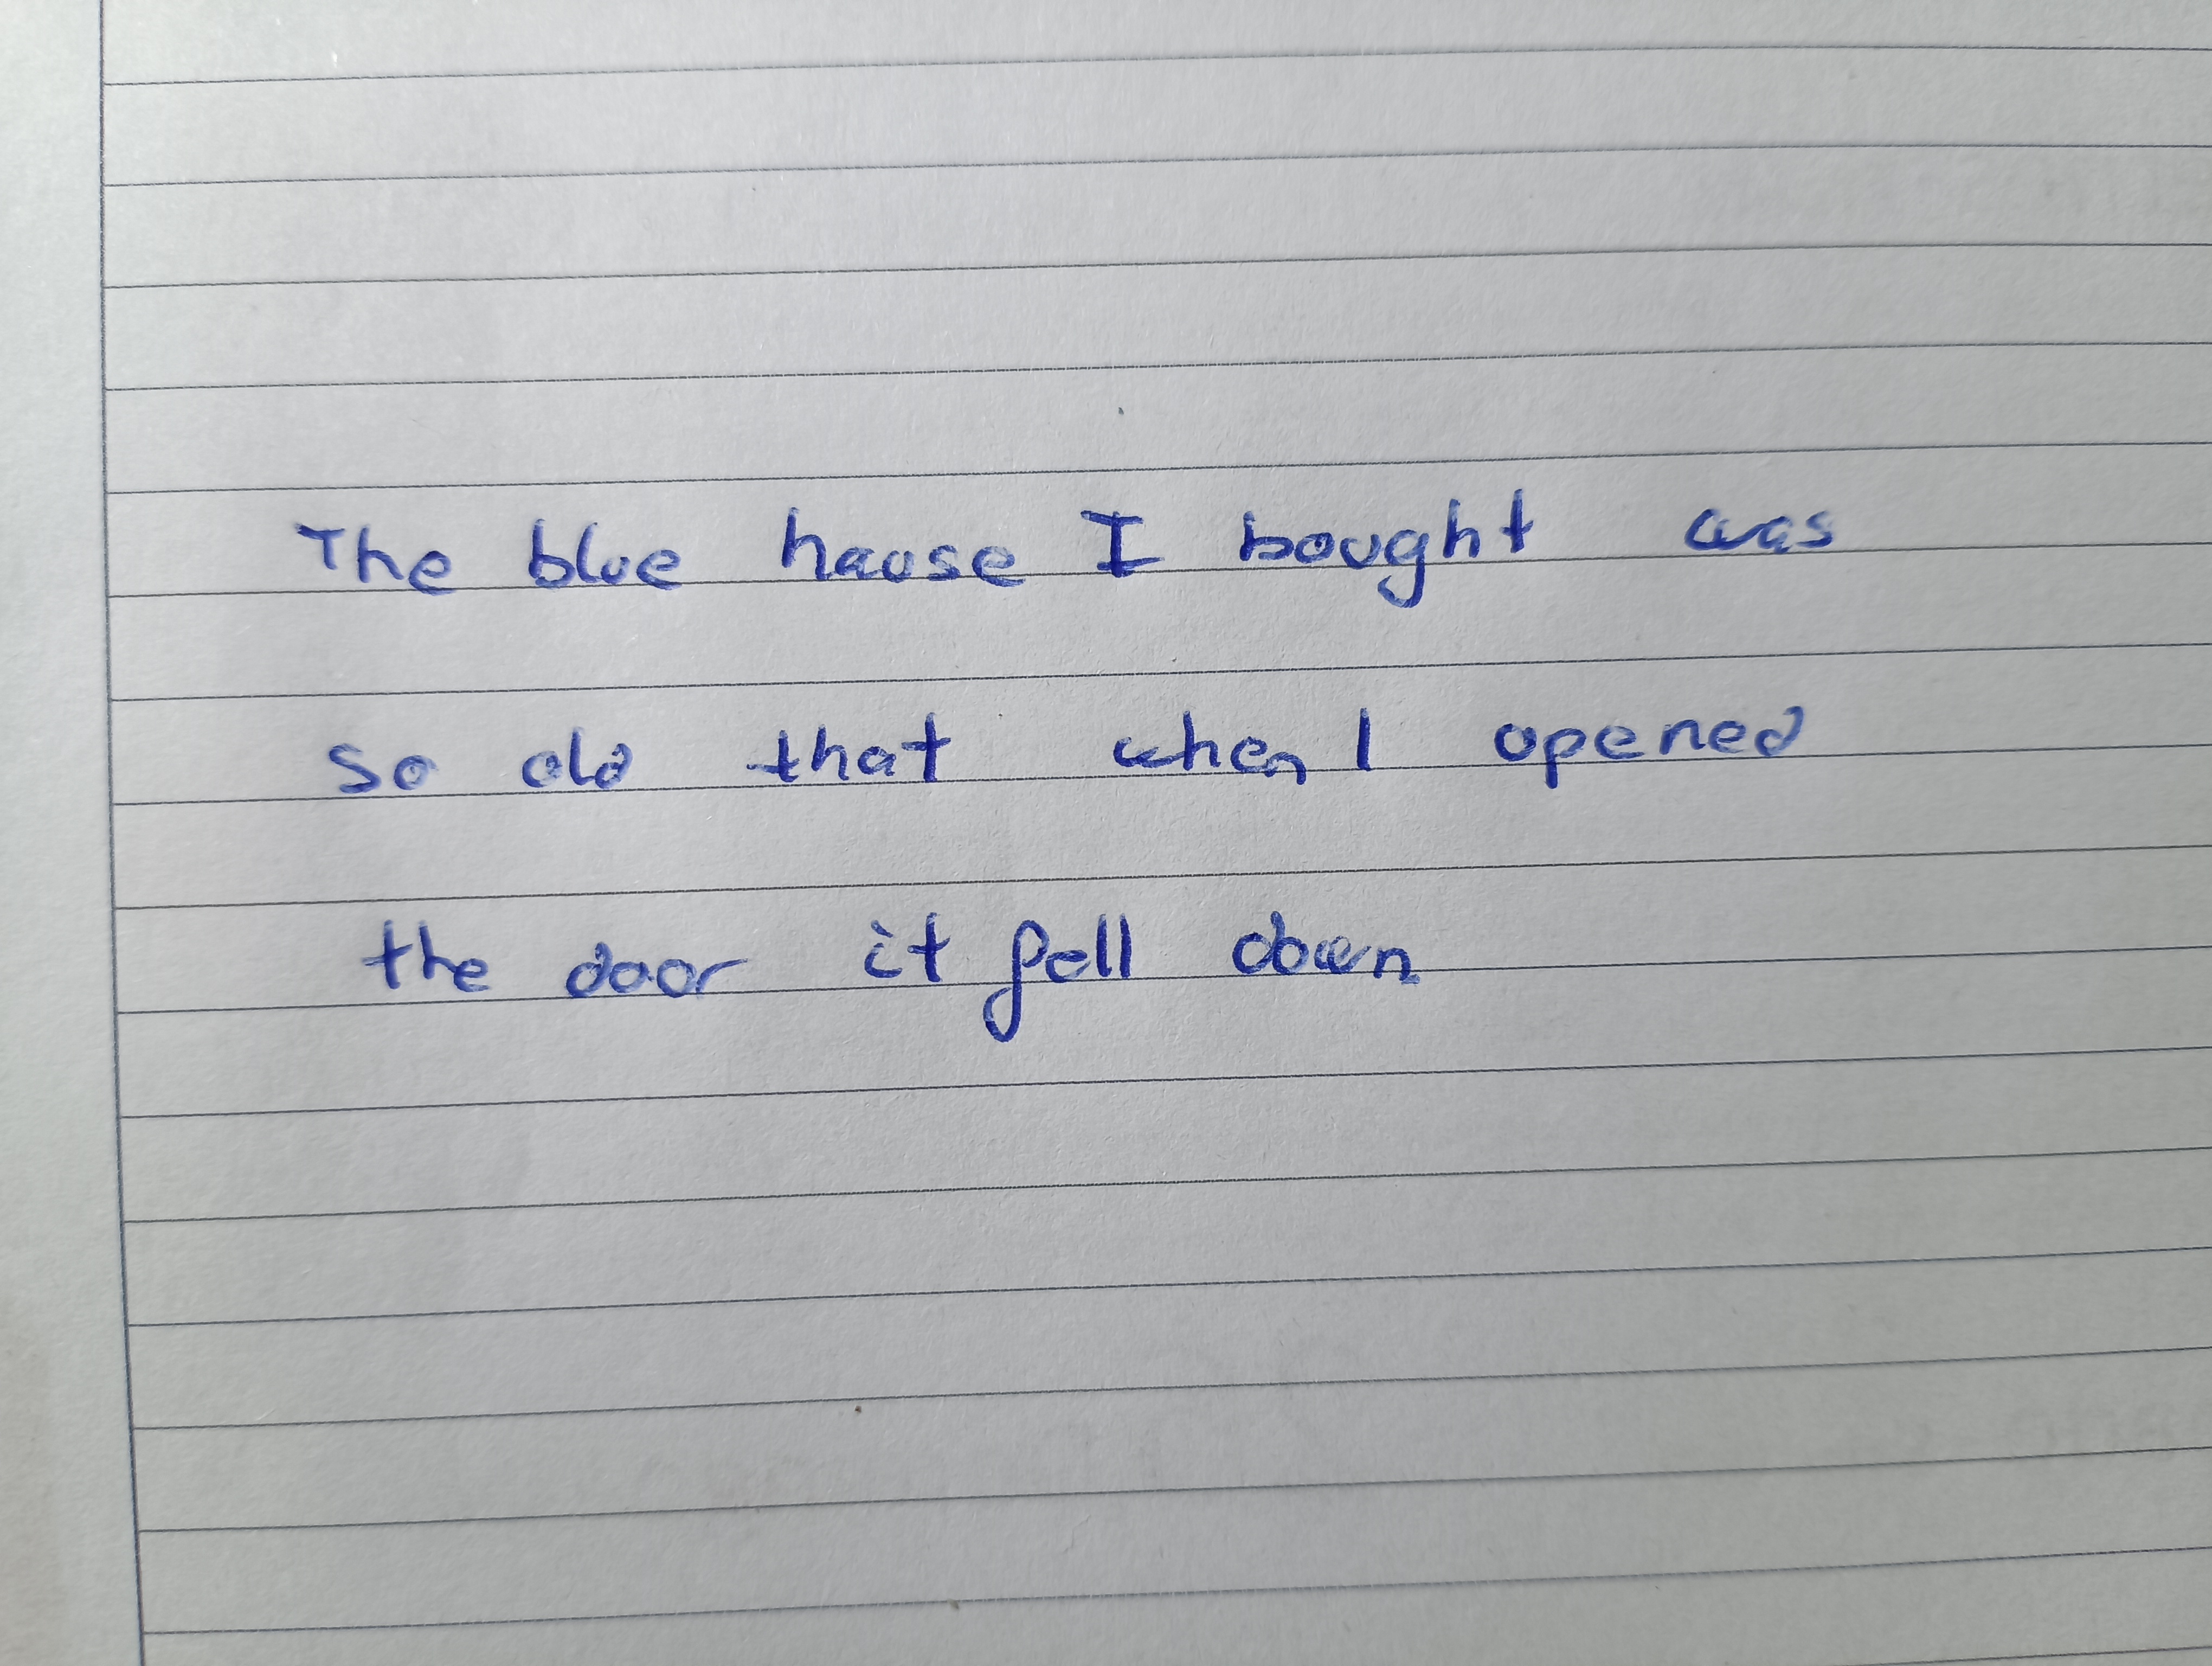 The blue hause I bought was
so old that when I opened
the door it fell down